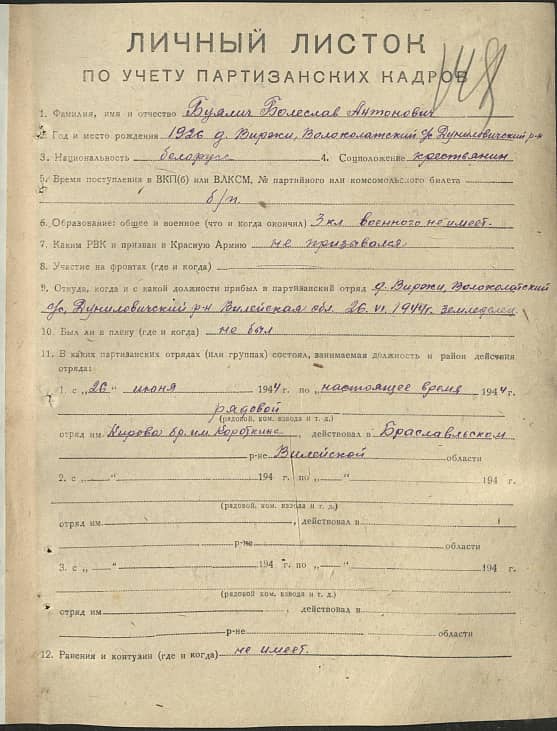 ЛИЧНЫЙ ЛИСТОК
ПО УЧЕТУ ПАРТИЗАНСКИХ КАДРОВ
148
1. Фамилия, имя и отчество Буялич Болеслав Антонович
2. Год и место рождения 1926 д. Виржи, Волоколатский с/с, Дуниловичский р-н
3. Национальность белорусс 4. Соцположение крестьянин
5. Время поступления в ВКП(б) или ВЛКСМ, № партийного или комсомольского билета
б/п.
6. Образование: общее и военное (что и когда окончил) 3 кл. военного не имеет.
7. Каким РВК и призван в Красную Армию не призывался
8. Участие на фронтах (где и когда)
9. Откуда, когда и с какой должности прибыл в партизанский отряд д. Виржи, Волоколатский
с/с, Дуниловичский р-н Вилейская обл. 26.VI.1944г. земледелец
10. Был ли в плену (где и когда) не был
11. В каких партизанских отрядах (или группах) состоял, занимаемая должность и район действия
отряда:
1. с „26“ июня 1944 г. по „настоящее время 1944 г.
рядовой
(рядовой, ком. взвода и т. д.)
отряд им Кирова бр. им. Короткина, действовал в Браславльском
р-не Вилейской области
2. с „ “ 194 г. по „ “ 194 г.
(рядовой, ком. взвода и т. д.)
отряд им , действовал в
р-не области
3. с „ “ 194 г. по „ “ 194 г.
(рядовой, ком. взвода и т. д.)
отряд им , действовал в
р-не области
12. Ранения и контузии (где и когда) не имеет.